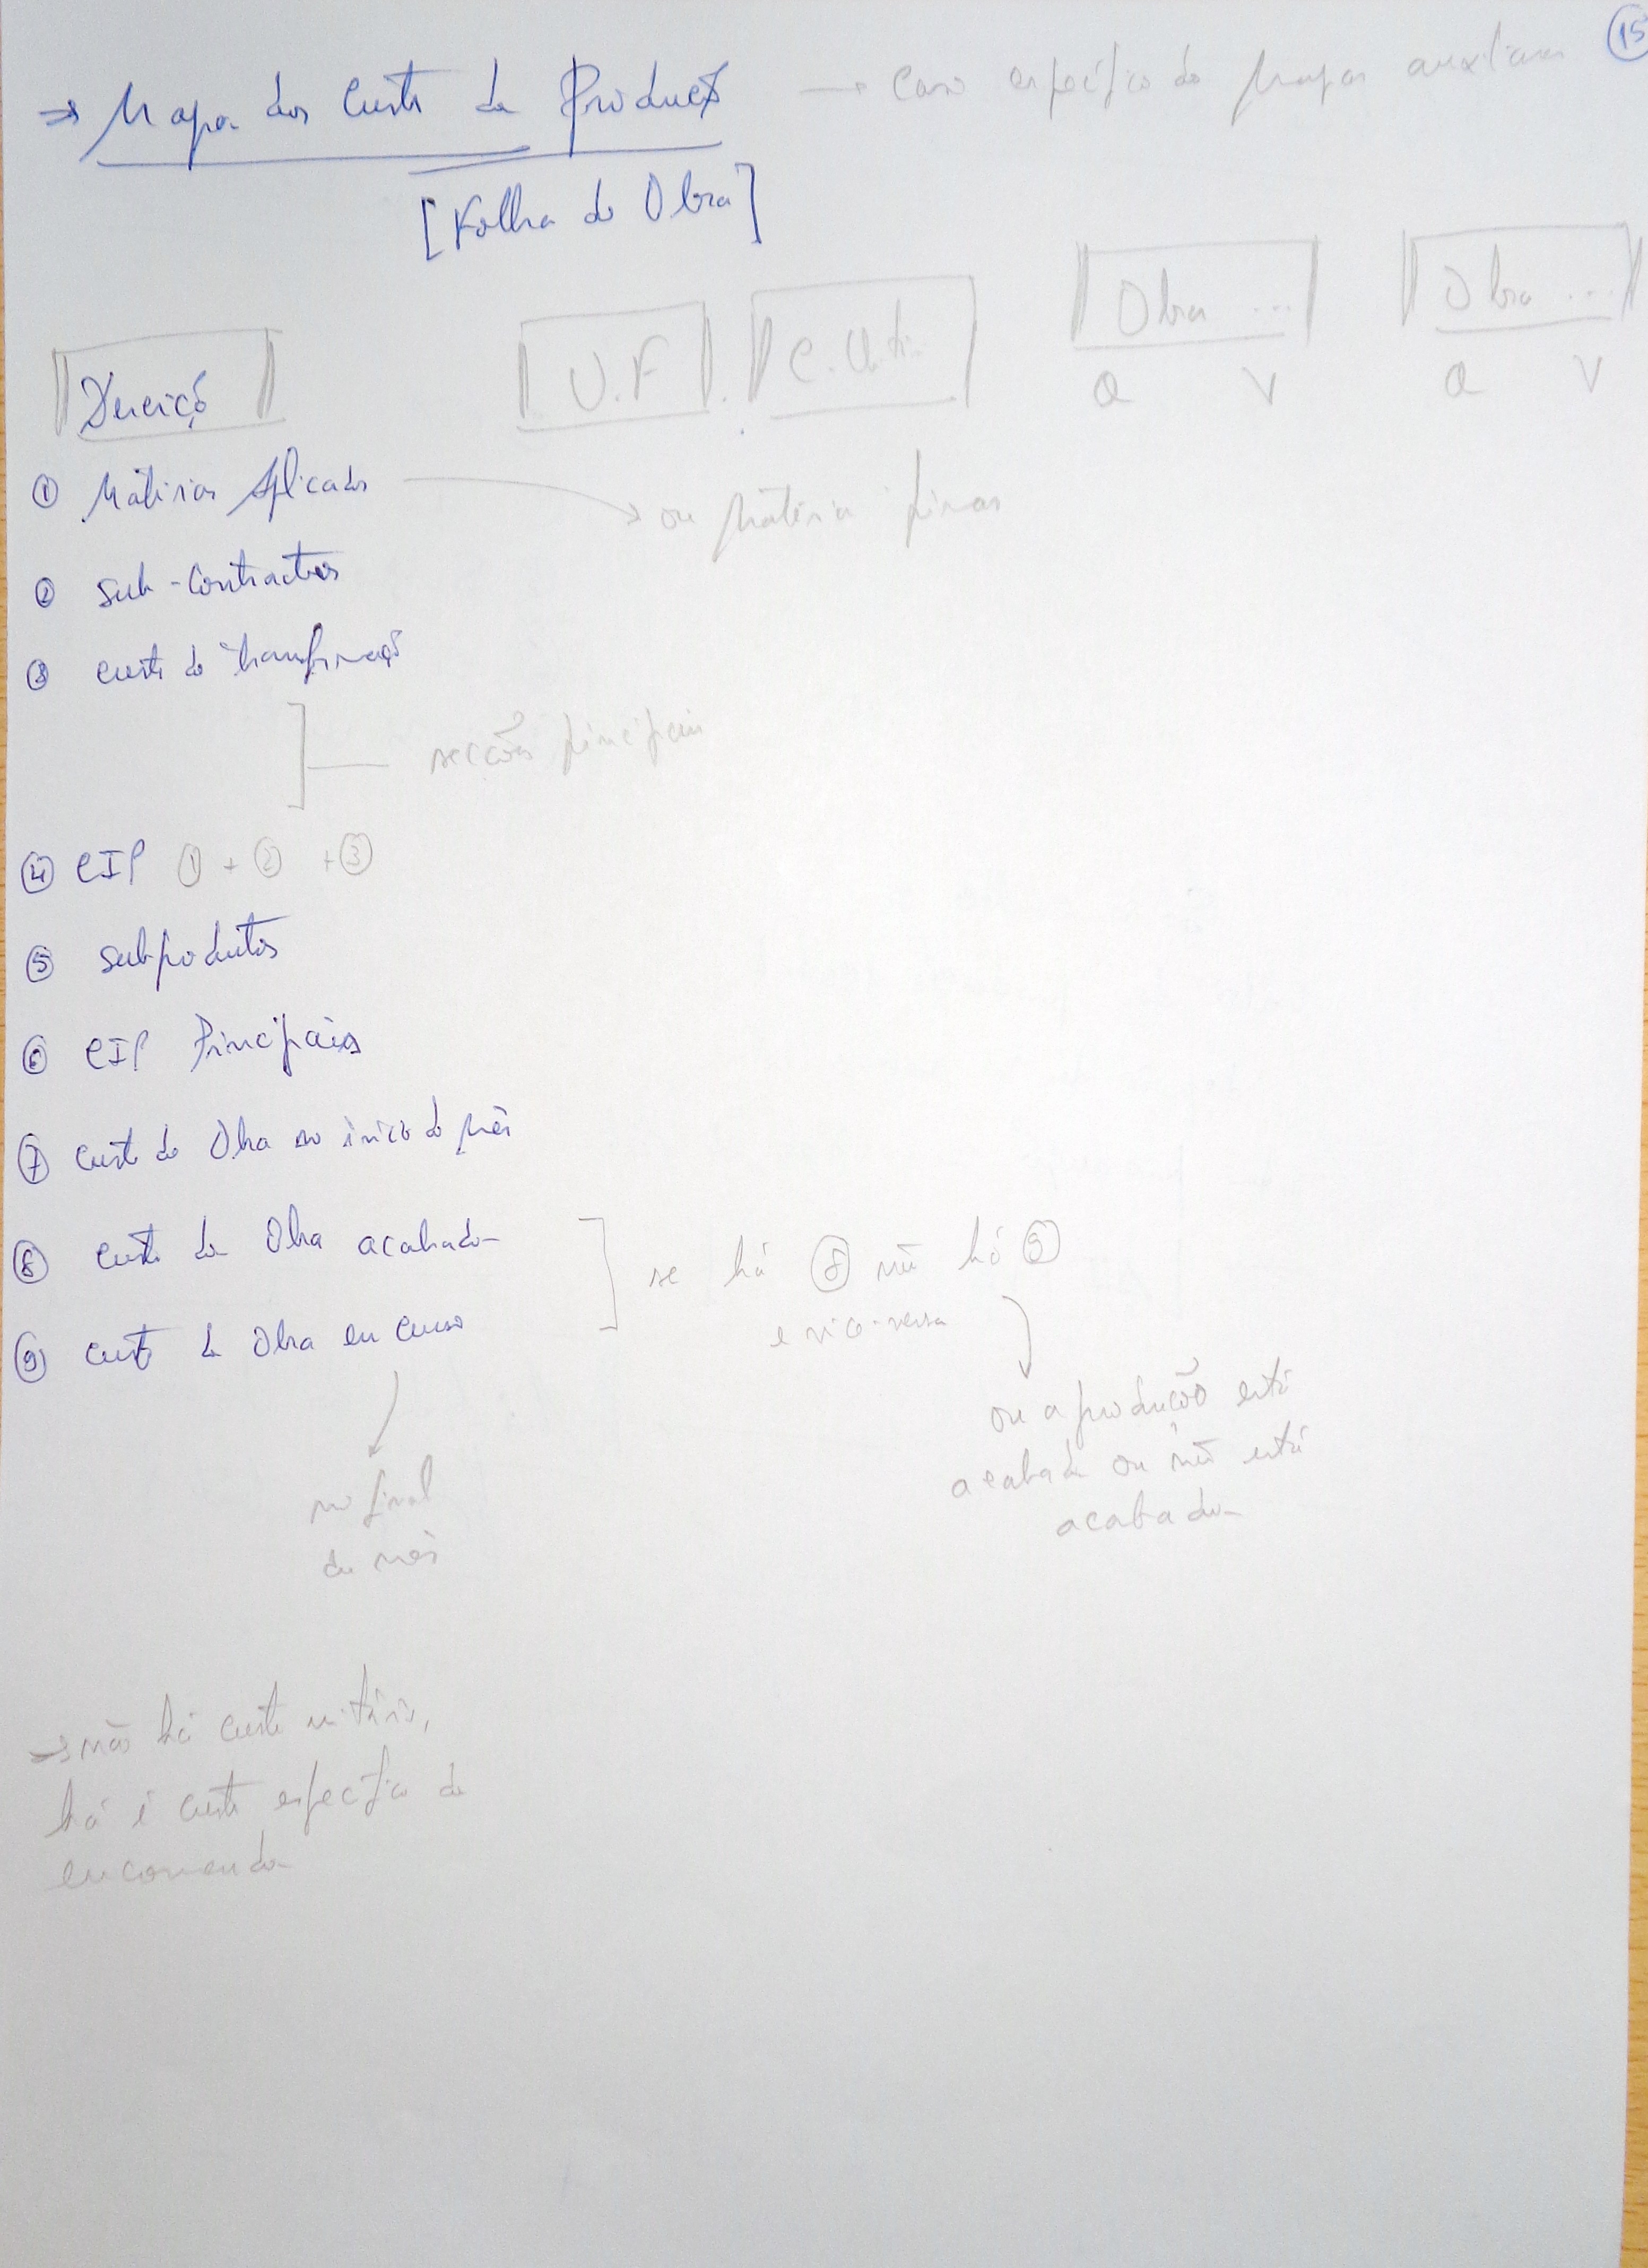 15
⇒ Mapa dos Custos de Produção → Caso específico de mapas auxiliares
[Folha de Obra]
Descrição U.F C. Unit. Obra ... Obra ...
Q V Q V
① Matérias Aplicadas → ou matérias primas
② sub-contractos
③ custos de transformação
] — secções principais
④ CIP ① + ② + ③
⑤ subprodutos
⑥ CIP Principais
⑦ custo da Obra no início do mês
⑧ custo da Obra acabada
] se há ⑧ não há ⑨
e vice-versa
⑨ custo da Obra em curso
ou a produção está
acabada ou não está
acabada
no final
do mês
→ não há custo unitário,
há é custo específico da
encomenda